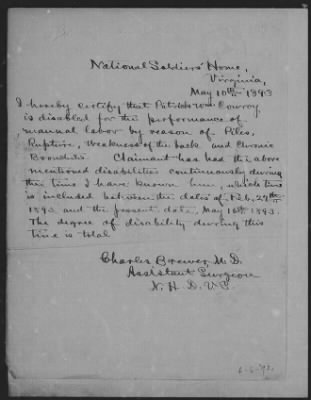 National Soldiers' Home,
Virginia,
May 10th 1893
I hereby certify that Patrick Wm Conroy
is disabled for the performance of
manual labor by reason of Piles,
Rupture, Weakness of the back and Chronic
Bronchitis. Claimant has had the above
mentioned disabilities continuously during
the time I have known him, which time
is included between the dates of Feb. 22nd
1893 and the present date, May 10th 1893.
The degree of disability during this
time is total
Charles Brewer M.D.
Assistant Surgeon
N. H. D. V. S.